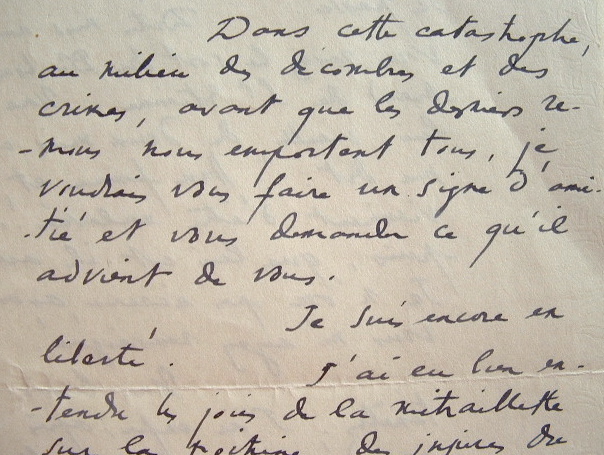 Dans cette catastrophe,
au milieu des décombres et des
crimes, avant que les derniers re-
-mous nous emportent tous, je
voudrais vous faire un signe d'ami-
-tié et vous demander ce qu'il
advient de vous.
Je suis encore en
liberté. J'ai eu bien en-
-tendu les joies de la mitraillette
sur la poitrine, des injures du